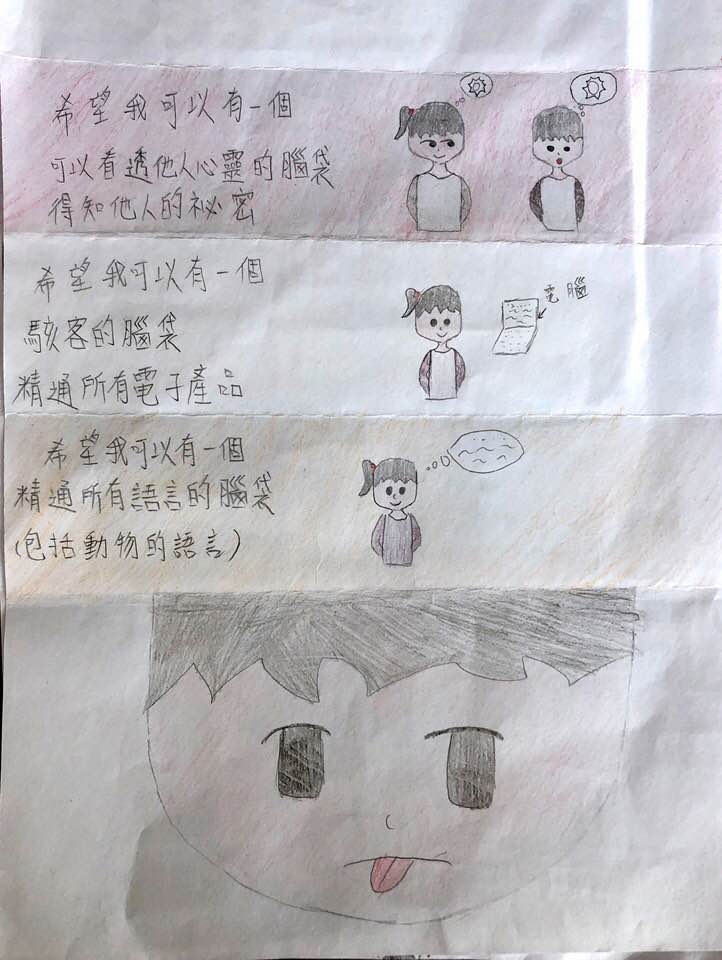 希望我可以有一個
可以看透他人心靈的腦袋
得知他人的祕密
希望我可以有一個
駭客的腦袋
精通所有電子產品
電腦
希望我可以有一個
精通所有語言的腦袋
(包括動物的語言)